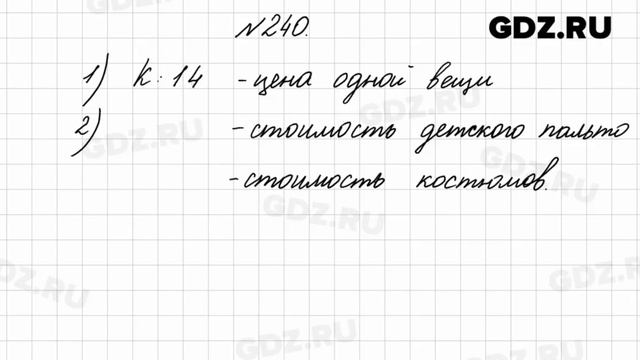 №240.
GDZ.RU
1) К : 14 - цена одной вещи
2) - стоимость детского пальто
- стоимость костюмов.
GDZ.RU
GDZ.RU
GDZ.RU
GDZ.RU
GDZ.RU
GDZ.RU
GDZ.RU